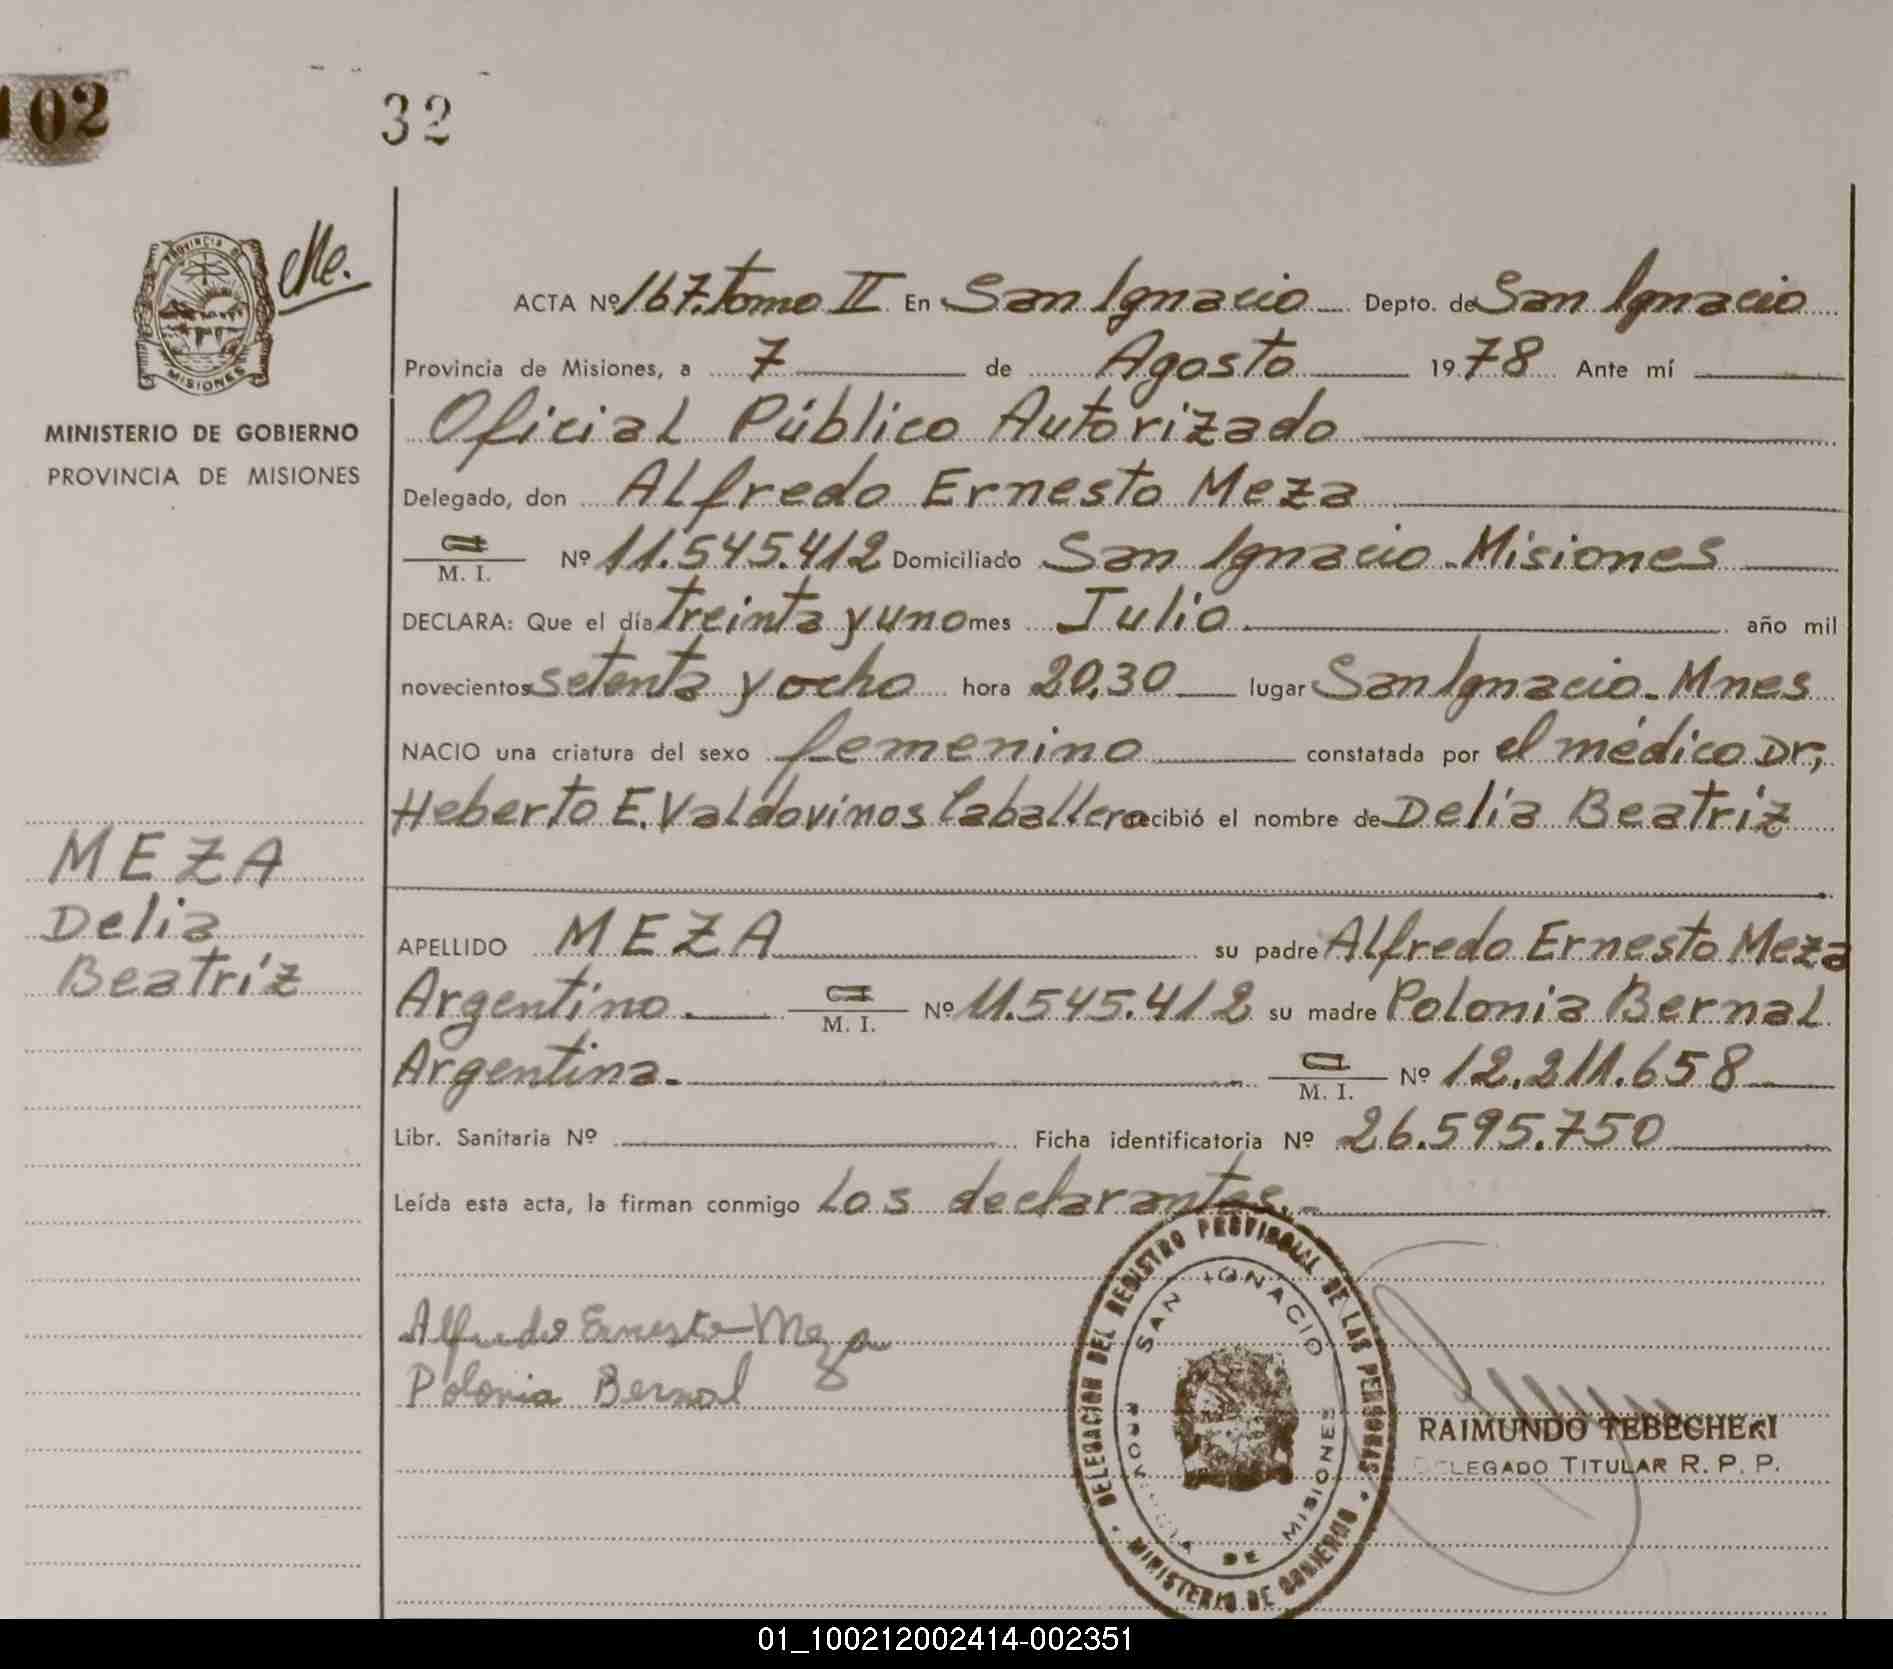 102
32
PROVINCIA DE
MISIONES
Me.
MINISTERIO DE GOBIERNO
PROVINCIA DE MISIONES
ACTA Nº 167. tomo II En San Ignacio Depto. de San Ignacio
Provincia de Misiones, a 7 de Agosto 1978 Ante mí
Oficial Público Autorizado
Delegado, don Alfredo Ernesto Meza
M. I. Nº 11.545.412 Domiciliado San Ignacio - Misiones
DECLARA: Que el día treinta y uno mes Julio año mil
novecientos setenta y ocho hora 20,30 lugar San Ignacio - Mnes
NACIO una criatura del sexo femenino constatada por el médico Dr,
Heberto E. Valdovinos Caballero recibió el nombre de Delia Beatriz
MEZA
Delia
Beatríz
APELLIDO MEZA su padre Alfredo Ernesto Meza
Argentino. M. I. Nº 11.545.412 su madre Polonia Bernal
Argentina. M. I. Nº 12.211.658
Libr. Sanitaria Nº Ficha identificatoria Nº 26.595.750
Leída esta acta, la firman conmigo Los declarantes.-
Alfredo Ernesto Meza
Polonia Bernal
DELEGACION DEL REGISTRO PROVINCIAL DE LAS PERSONAS
SAN IGNACIO
PROVINCIA DE MISIONES
MINISTERIO DE GOBIERNO
RAIMUNDO TEBECHERI
DELEGADO TITULAR R. P. P.
01_100212002414-002351